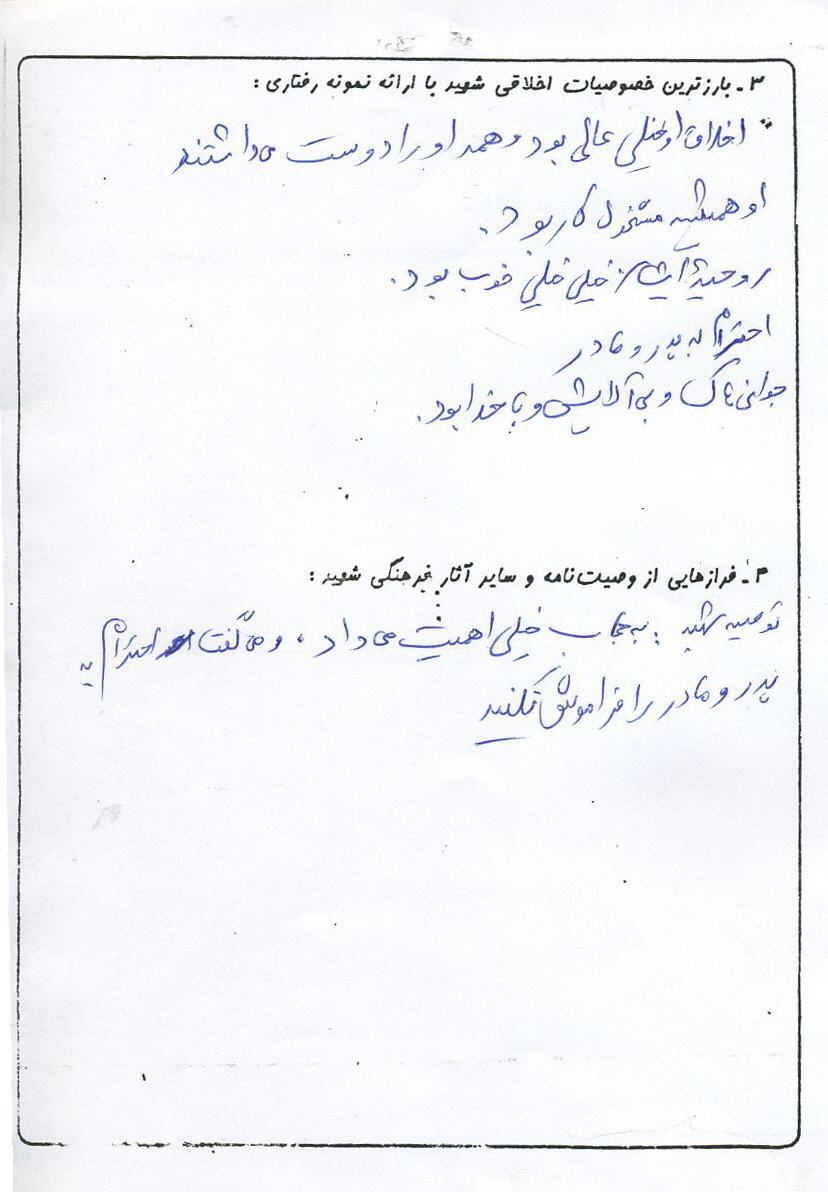 ۳ـ بارزترین خصوصیات اخلاقی شهید با ارائه نمونه رفتاری :
اخلاق او خیلی عالی بود و همه او را دوست می داشتند
او همیشه مشغول کار بود .
روحیهٔ ایشان خیلی خیلی خوب بود .
احترام به پدر و مادر
جوانی پاک و بی آلایش و با خدا بود .
۴ـ فرازهایی از وصیت نامه و سایر آثار فرهنگی شهید :
توصیه شهید : به حجاب خیلی اهمیت می داد ، و می گفت احترام به
پدر و مادر را فراموش نکنید